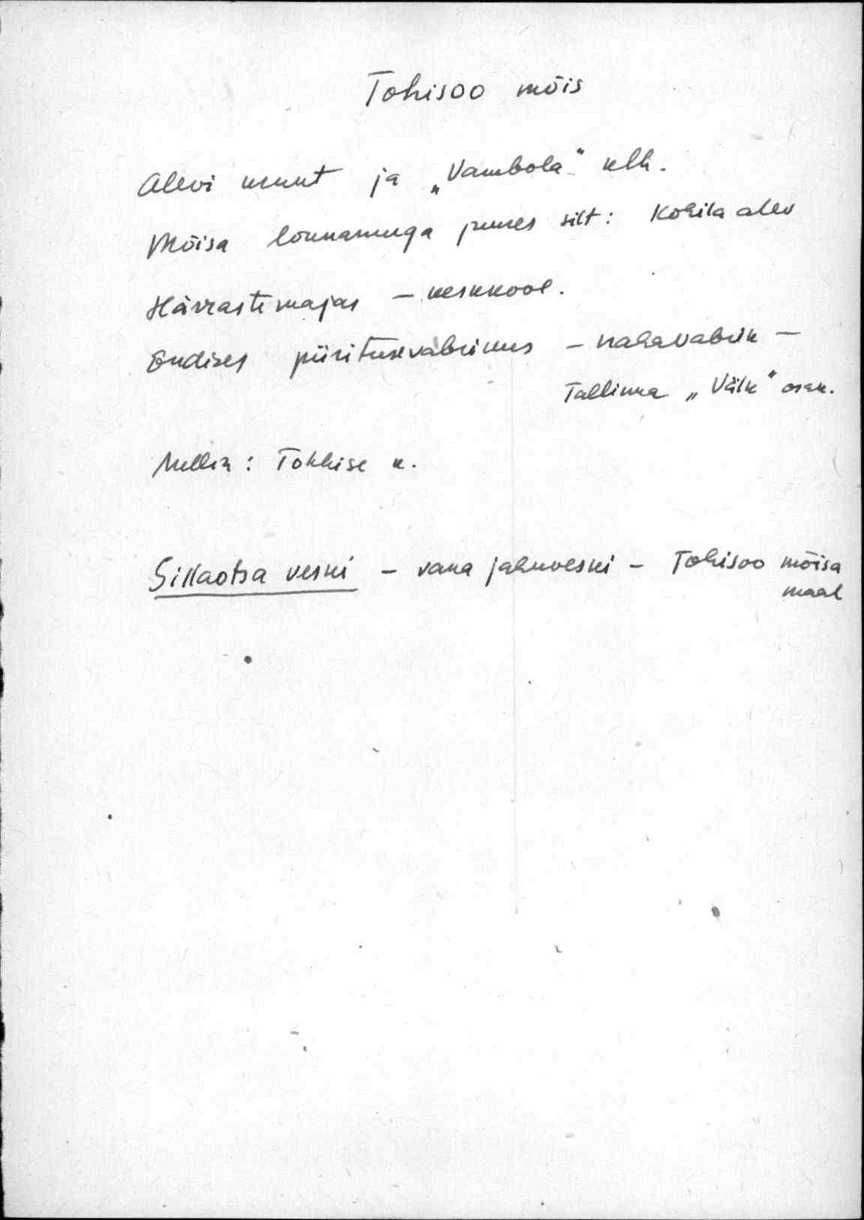 Tohisoo mõis
Alevi ja „Vambola" klh.
Mõisa lõunanurga juures silt: Kohila alev
Härrastemajas – keskkool.
Endises piiritusevabrikus – nahavabrik –
Tallinna „Välk" osak.
Tohhise k.
Sillaotsa veski – vana jahuveski – Tohisoo mõisa
maal